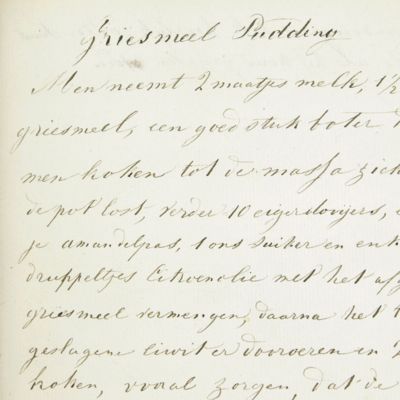 Griesmeel Pudding
Men neemt 2 maatjes melk, 1/2
griesmeel, een goed stuk boter
men koken tot de massa zich
de pot lost, verder 10 eigerdooijers,
je amandelpas, 1 ons suiker en enk
druppeltjes Citroenolie met het afg
griesmeel vermengen, daarna het
geslagene eiwit er dooroeren en
koken, vooral zorgen, dat de